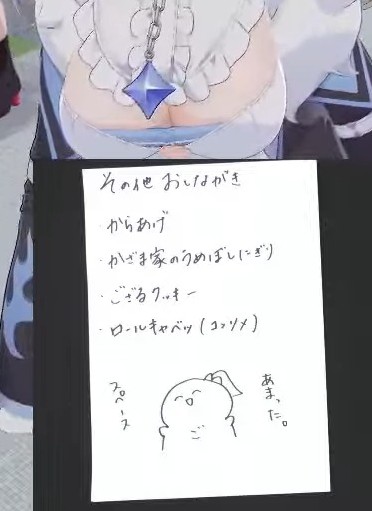 その他 おしながき
・からあげ
・かざま家のうめぼしにぎり
・ござるクッキー
・ロールキャベツ(コンソメ)
スペース
あまった。
ご